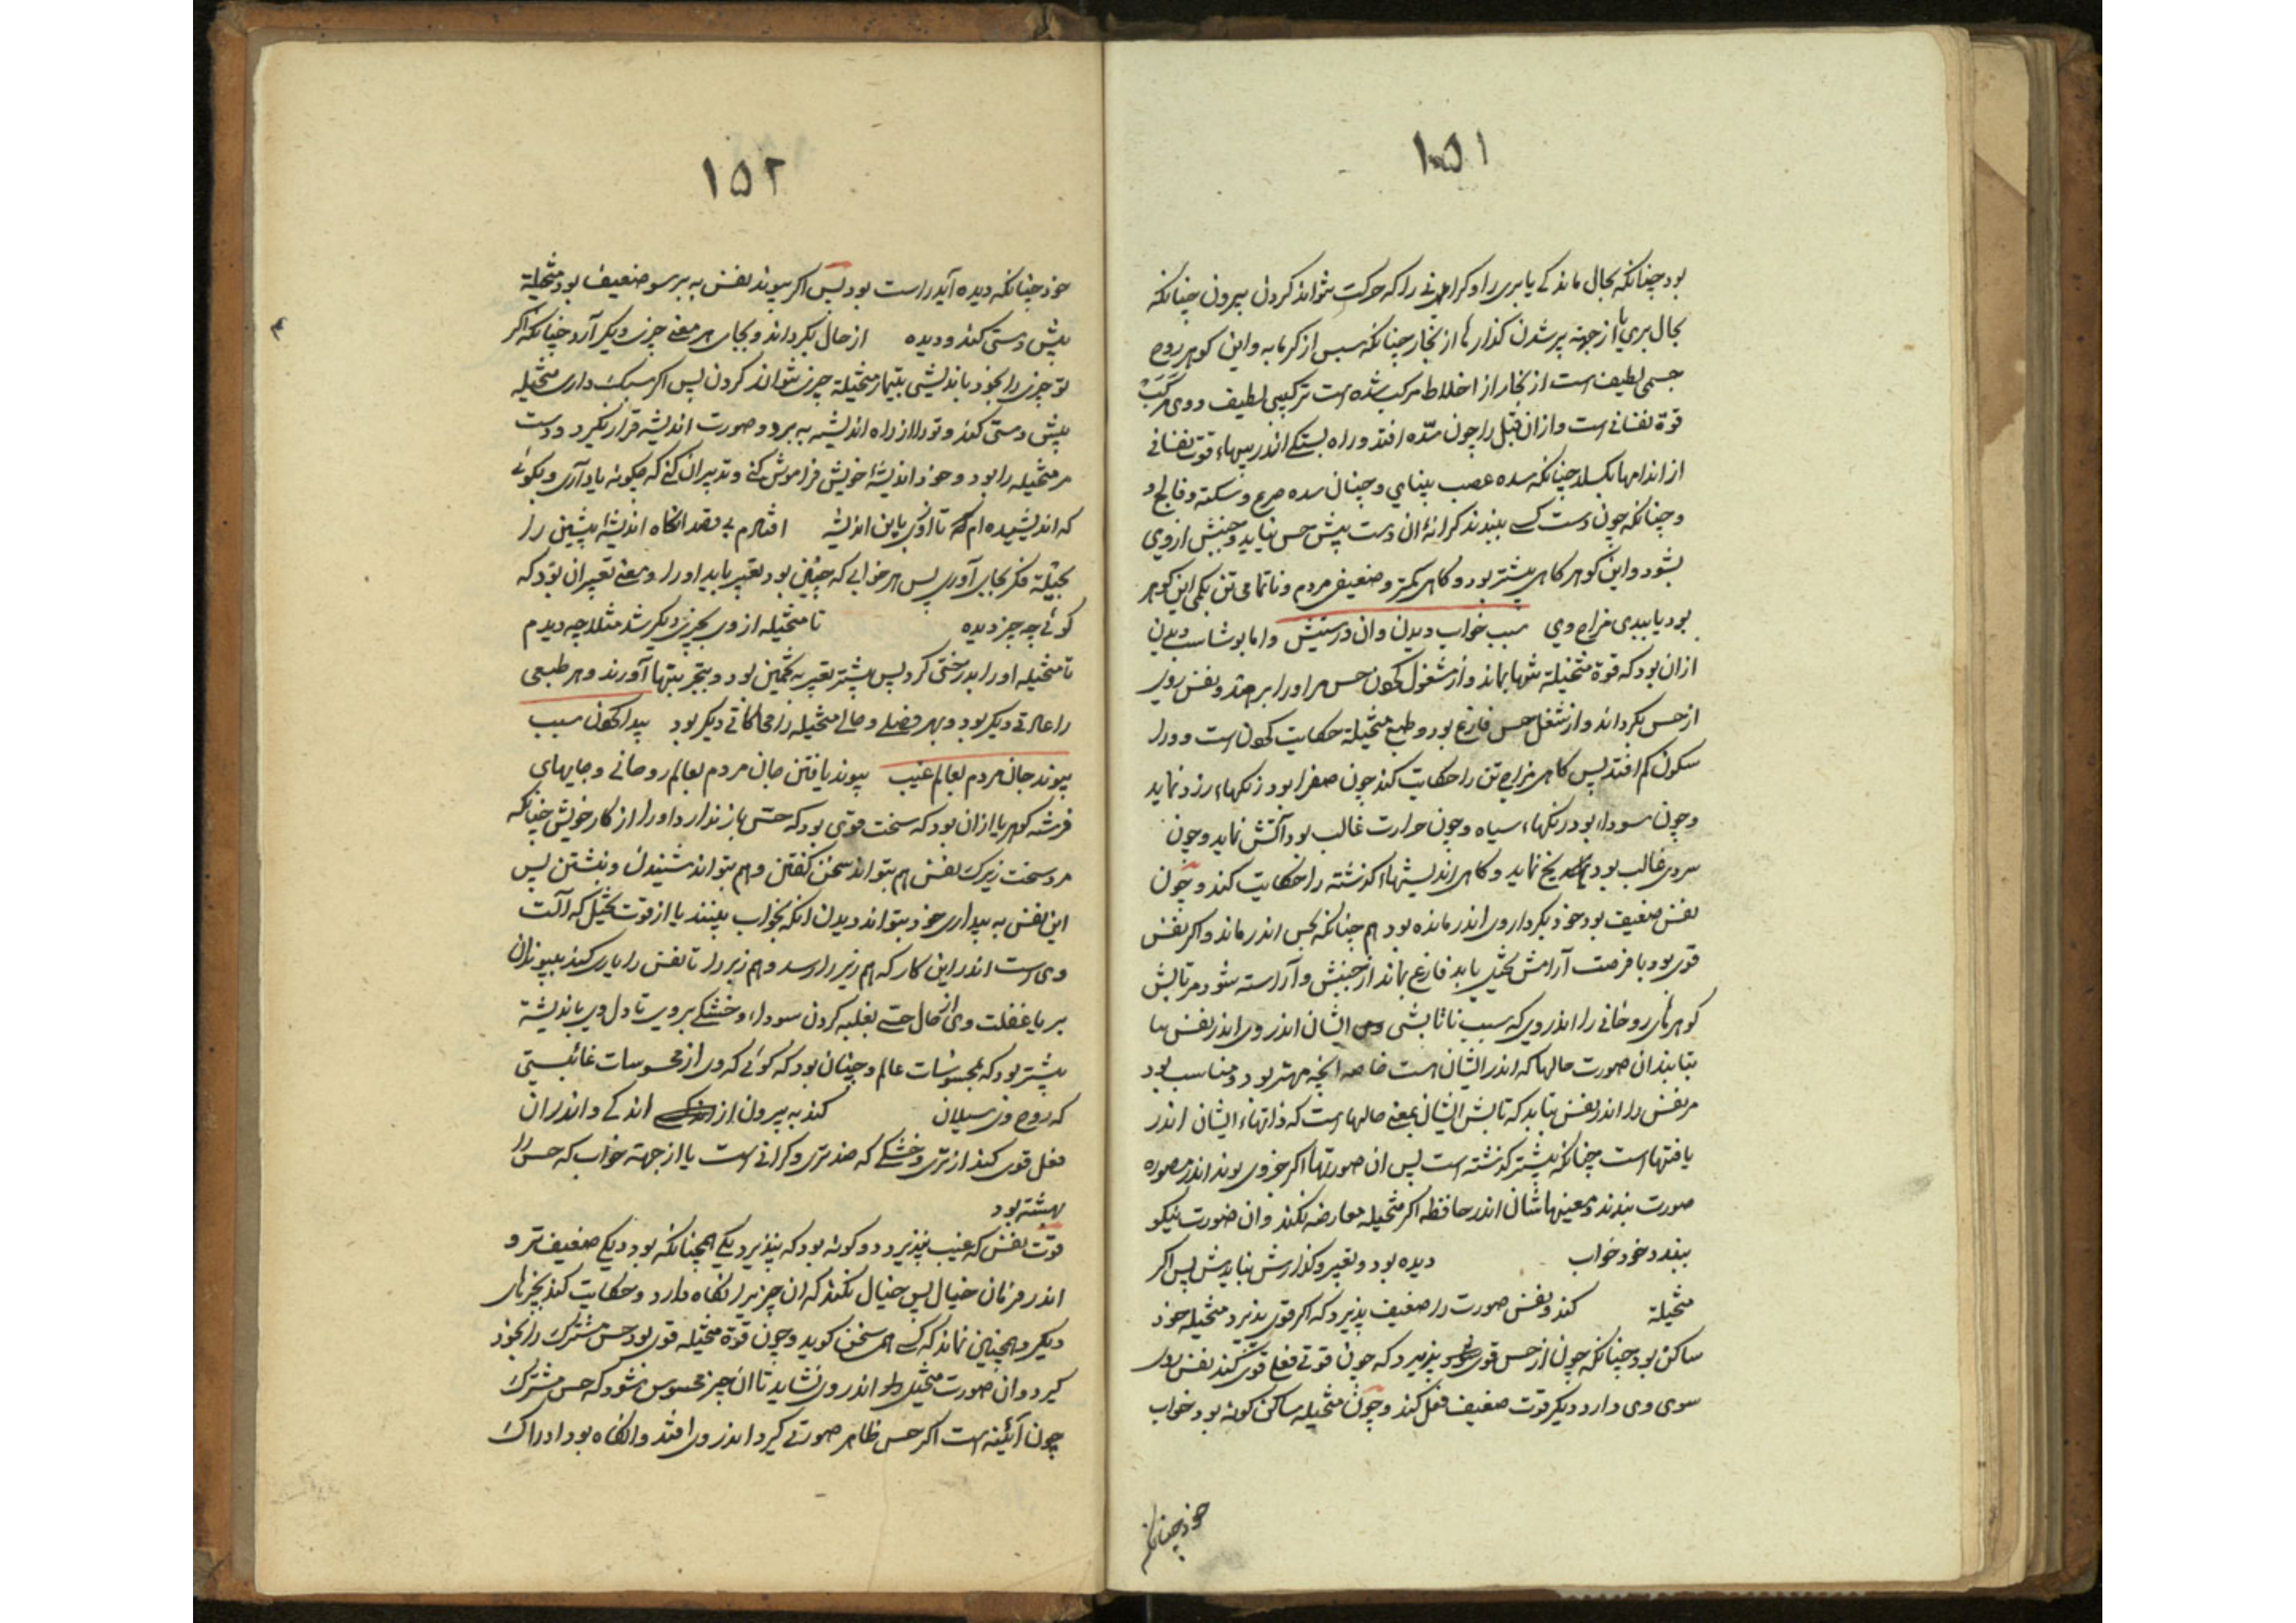 ١٥١
بود چنانکه بحال ماندکے یا بری را و کرا نے را که حرکت نتواند کردن بیرون چنانکه
بحال بری یا از جهة پر شدن کذارها از بخار چنانکه سپس از کرمابه و این کوهر روح
جسمی لطیف است از بخار از اخلاط مرکب شده است ترکیبی لطیف و وی مرکب
قوة نفسانی است و از ان قبل را چون سدّه افتد و راه بستکے اندر پیهاء قوت نفسانی
از اندامها بکسلد چنانکه سده عصب بینایی و چنان سده صرع و سکته و فالج و
و چنانکه چون دست کسے ببندند کرانهٔ ان دست پیش حس نیابد و جنبش از وی
بشود و این کوهر کاهی بیشتر بود و کاهی کمتر و ضعیفی مردم و ناتمامی تن بکمی این کوهر
بود یا ببدی مزاج وی سبب خواب دیدن و ان درستیش و اما بوشاسب دیدن
ازان بود که قوة متخیلة تنها بماند و از مشغول کردن حس مر او را برهد و نفس روی
از حس بکرداند و از شغل حس فارغ بود و طبع متخیلة حکایت کردن است و ورا
سکون کم افتد پس کاهی مزاج تن را حکایت کند چون صفرا بود رنکهاء زرد نماید
و چون سوداء بود رنکهاء سیاه و چون حرارت غالب بود آتش نماید و چون
سردی غالب بود یخ نماید و کاهی اندیشهاء کذشته را حکایت کند و چون
نفس ضعیف بود خود بکردار وی اندر مانده بود هم چنانکه بحس اندر ماند و اکر نفس
قوی بود با فرصت آرامش تخیل یابد فارغ بماند از جنبش و آراسته شود مر تابش
کوهرهای روحانی را اندر وی که سبب ناتابشی ایشان اندر وی اندر نفس
بتابند ان صورت حالها که اندر ایشان است خاصه انچه مهتر بود و مناسب بود
مر نفس را اندر نفس بتابد که تابش ایشان بمعنی حالها است که ذاتهاء ایشان اندر
یافتها است چنانکه پیشتر کذشته است پس ان صورتها اکر جزوی بوند اندر مصوره
صورت بندند و معنیهاشان اندر حافظه اکر متخیله معارضه نکند و ان صورت نیکو
ببندد خود خواب دیده بود و تعبیر و کذارش نبایدش پس اکر
متخیلة کند و نفس صورت را ضعیف پذیرد که اکر قوی پذیرد متخیله خود
ساکن بود چنانکه چون از حس قوی پذیرد که چون قوتے فعل قوی کند نفس روی
سوی وی دارد دیکر قوت ضعیف فعل کند و چون متخیله ساکن کونه بود خواب
خود چنانکه
١٥٢
خود چنانکه دیده آید راست بود پس اکر پیوند نفس به برسو ضعیف بود متخیلة
پیش دستی کند و دیده از حال بکرداند و بجای هر معنے چیزی دیکر آرد چنانکه اکر
تو چیزی را بخود باندیشی بتیمار متخیلة چیزی نتواند کردن پس اکر سبک داری متخیله
پیش دستی کند و تو را از راه اندیشه به برد و صورت اندیشه قرار نکیرد و دست
مر متخیله را بود و خود اندیشهٔ خویش فراموش کنے و تدبیر ان کنے که چکونه یاد آری و بکوئے
که اندیشیده ام که تا اکنون باین اندیشه افتادم بے قصد انکاه اندیشهٔ پیشین را
بحیلة فکر بجای آوری پس هر خوابے که چنین بود تعبیر باید او را و معنے تعبیر ان بود که
کوئے چه چیز دیده تا متخیله از وی بچیزی دیکر شد مثلا چه دیدم
تا متخیله او را بدرختی کرد پس بیشتر تعبیر به تخمین بود و بتجربتها آورند و هر طبعی
را عادتے دیکر بود و بهر فصلے و حالے متخیله را محاکاتی دیکر بود پیدا کردن سبب
پیوند جان مردم بعالم غیب پیوند یافتن جان مردم بعالم روحانے و جایهای
فرشته کوهر یا ازان بود که سخت قوی بود که حسّ باز ندارد او را از کار خویش چنانکه
مرد سخت زیرک نفس هم بتواند سخن کفتن و هم بتواند شنیدن و نبشتن پس
این نفس به بیداری خود بتواند دیدن انکه بخواب ببینند یا از قوت تخیل که آلت
وی است اندر این کار که هم زیر را رسد و هم زبر را تا نفس را یاری کند بپیوند ان
بر یا غفلت وی از حال حسّے بغلبه کردن سوداء و خشکے بر وی تا دل وی باندیشه
بیشتر بود که بمحسوسات عالم و چنان بود که کوئے که وی از محسوسات غائبستی
که روح وی سیلان کند به بیرون از اندکے و اندر ان
فعل قوی کند از تری و خشکے که ضد تری و کرانے است یا از جهة خواب که حس را
بهشته بود
قوّت نفس که غیب بپذیرد دو کونه بود که بپذیرد یکے همچنانکه بود دیکے ضعیف تر و
اندر فرمان خیال پس خیال نکند که ان چیز را نکاه دارد و حکایت کند بچیزهای
دیکر و همچنین نماند که کسے همی سخن کوید و چون قوة متخیله قوی بود حس مشترک را بخود
کیرد و ان صورت متخیل اندر وی نشاید تا ان چیز محسوس شود که حس مشترک
چون آئینه است اکر حس ظاهر صورتے کیرد اندر وی افتد و انکاه بود ادراک